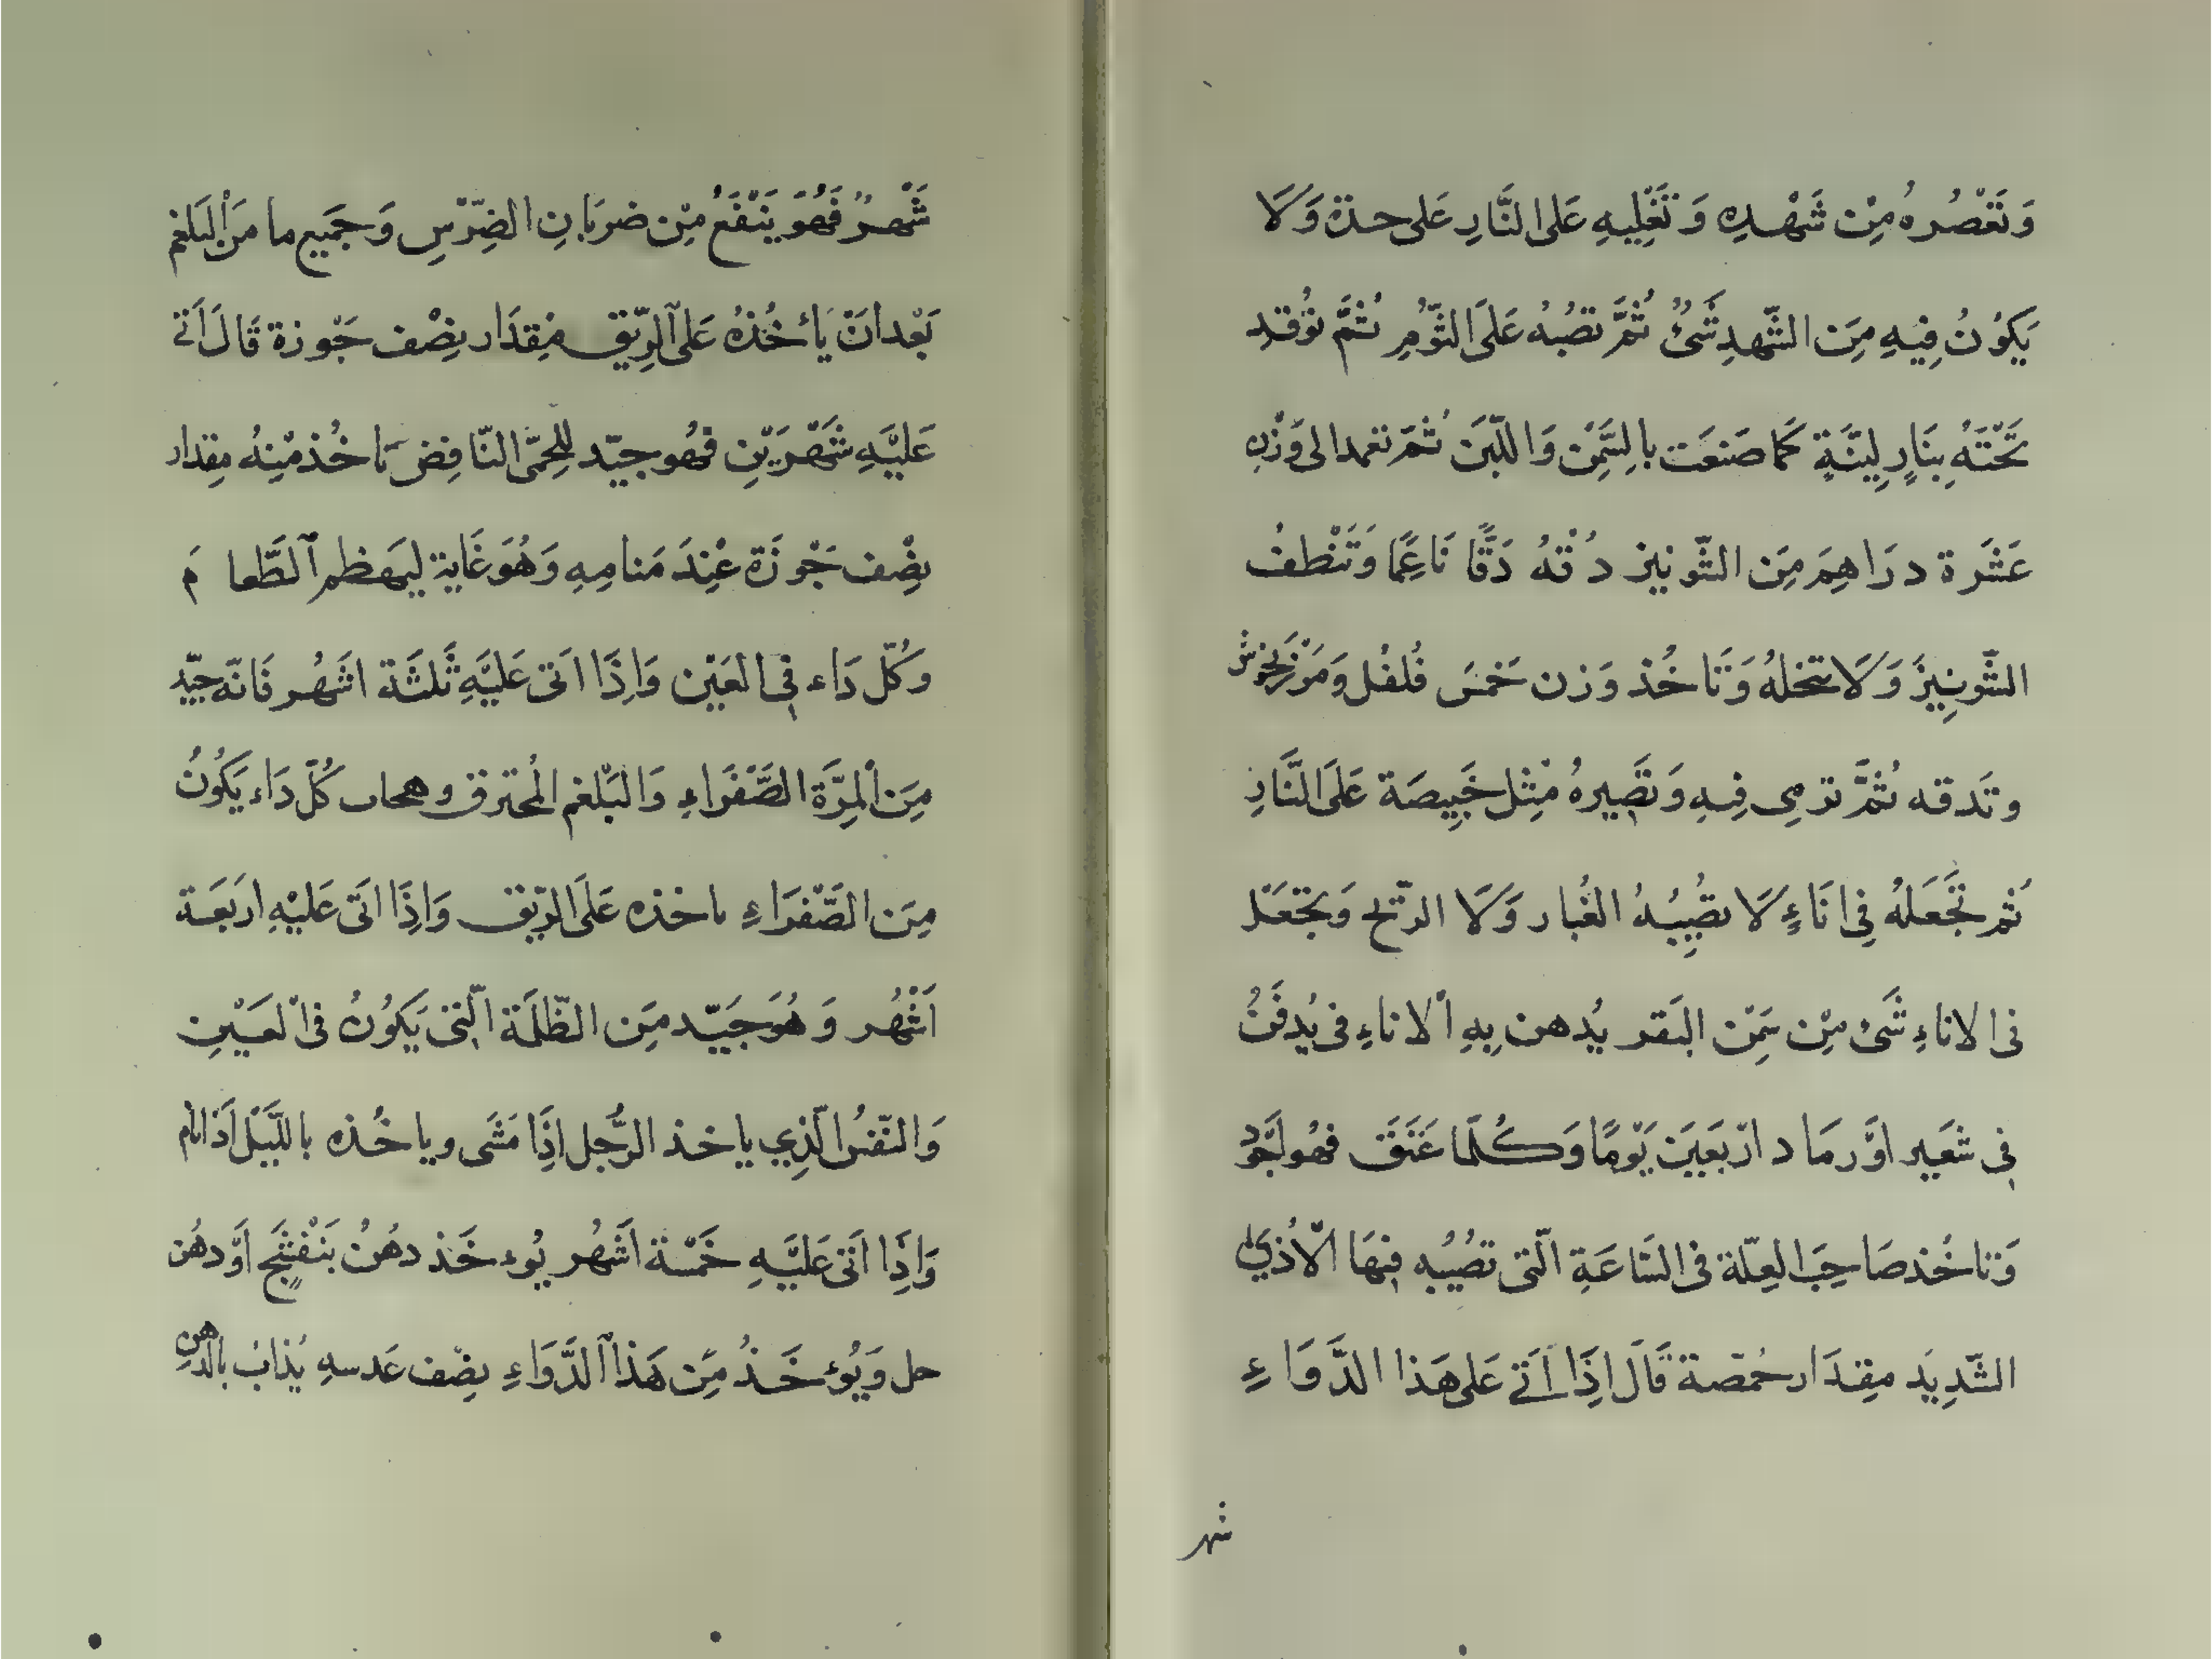 وَتَعْصُرهُ مِنْ شَهْدِهِ وَتَغْلِيهِ عَلى النَّارِ عَلى حدة وَلَا
يَكوُنُ فِيهِ مِنَ الشّهدِ شَيْءٌ ثُمَّ تصُبهُ عَلَى الثّوُمِ ثُمَّ توُقد
تَحْتَهُ بِنَارٍ لِينَّةٍ كَما صَنعَت بالسَّمِنْ وَاللّبَن ثمَ تعمد الى وَزْنِ
عَشَرة دَرَاهِمَ مِنَ الشّونيز دُقهُ دَقًّا نَاعِمًا وَتَنْظف
الشّونِيزَ وَلَا تنخلهُ وَتَاخُذ وَزن خَمسَ فُلفُل وَمَرْزَنجُوش
وتَدقه ثُمَّ ترمِى فِيهِ وَتصَيرهُ مْثِل خَبِيصَة عَلَى النَّارِ
ثُم تَجْعَلهُ فِى انَاءٍ لَا يصُيِبُهُ الغُبار وَلَا الرّيح وَيجْعَل
فى الاناءِ شَىْ مِنْ سَمِنْ البَقر يُدهن بِهِ الاناءِ فى يُدفَنُ
فِى شعَير اوَّ رمَاد ارْبَعَيَن يَوْمًا وَكُلّمَا عَتَقَ فهُو اَجَود
وَتاخُذ صَاحِبَ العِلّة فى السَّاعَةِ الّتى تصُيُبه فِيهَا الْاُذي
الشّدِيَد مِقِدَار حُمّصة قَالَ اِذَا اَتَى عَلى هَذا الدَّوَاءِ
شهر
شَهْرٌ فَهُوَ يَنْفَعُ مِنْ ضربَانِ الضِرّسِ وَجَمَيع ما مَن البَلغم
بَعْد انَ يَأخُذهُ عَلى الرِيّق مِقِدَار نِصْف جَوْزة قَالَ اَتى
عَليْهِ شَهْرَيْنِ فهُو جيّد للِحمّى النّافِض يَاخُذ مِنْهُ مِقدار
نِصْف جَوْزَة عْنِدَ مَنامِهِ وَهُوَ غَاية ليهَظم الطَّعام
وَكُلّ دَاء فِى العَيْن وَاِذَا اَتى عَليَهِ ثَلثَة اشَهُر فَانّه جيّد
مِنَ المِرَّة الصَّفْرَاءِ وَالبَلْغم المُحترق وهجاب كُلّ دَاء يَكوُنُ
مِنَ الصَّفْرَاءِ ياخذه عَلَى الرّيق وَاِذَا اتَى عَليْهِ اربَعَة
اَشْهُر وَهُوَ جَيّد مِنَ الظّلمَة الّتى يَكوُنُ فى العَيْنِ
وَالنَفّسُ الّذِي ياخذ الرَّجل اِذَا مَشَى وياخُذه بالليَّل اَذانام
وَاِذَا اَتىَ عَليْهِ خَمْسة اَشَهُر يُوءخَذ دهُنُ بَنْفَسَج اَوّ دهُن
حل وَيُوءخَذُ مِن هَذا الدَّوَاءِ نصِف عَدسهِ يُذابُ بالدّهن